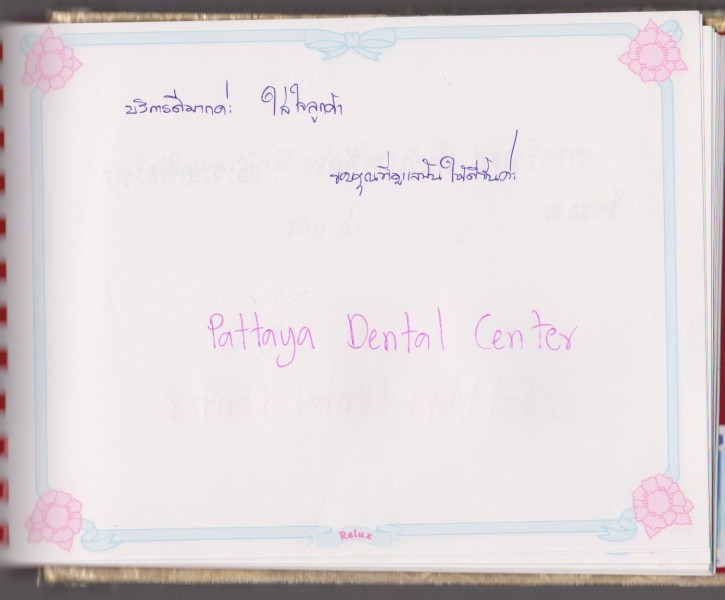 บริการดีมากค่ะ ใส่ใจลูกค้า
ขอบคุณที่ดูแลฟันให้ดีขึ้นค่ะ
Pattaya Dental Center
Relux